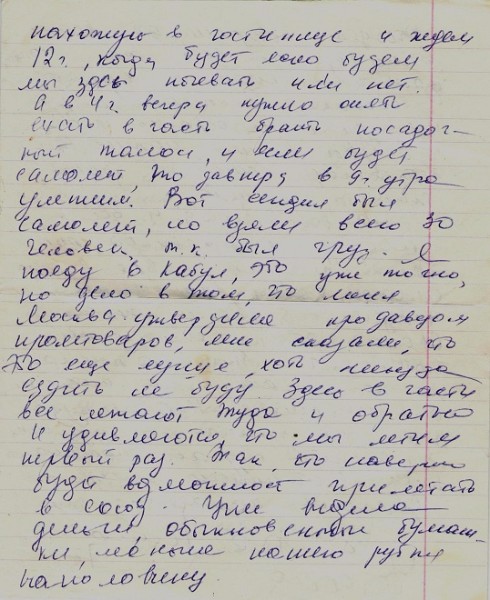 нахожусь в гостинице и ждем
12 г., когда будет ясно будем
мы здесь ночевать или нет.
А в 4 г. вечера нужно опять
ехать в часть брать посадоч-
ный талон, и если будет
самолет, то завтра в 9 г. утра
улетим. Вот сегодня был
самолет, но взяли всего 30
человек, т.к. был груз. Я
поеду в Кабул, это уже точно,
но дело в том, что меня
Москва утвердила продавцом
промтоваров, мне сказали, что
это еще лучше, хоть никуда
ездить не буду. Здесь в части
все летают туда и обратно
и удивляются, что мы летим
первый раз. Так, что наверно
будет возможност прилетать
в союз. Уже видела
деньги, обыкновенные бумаж-
ки, меньше нашего рубля
наполовину.